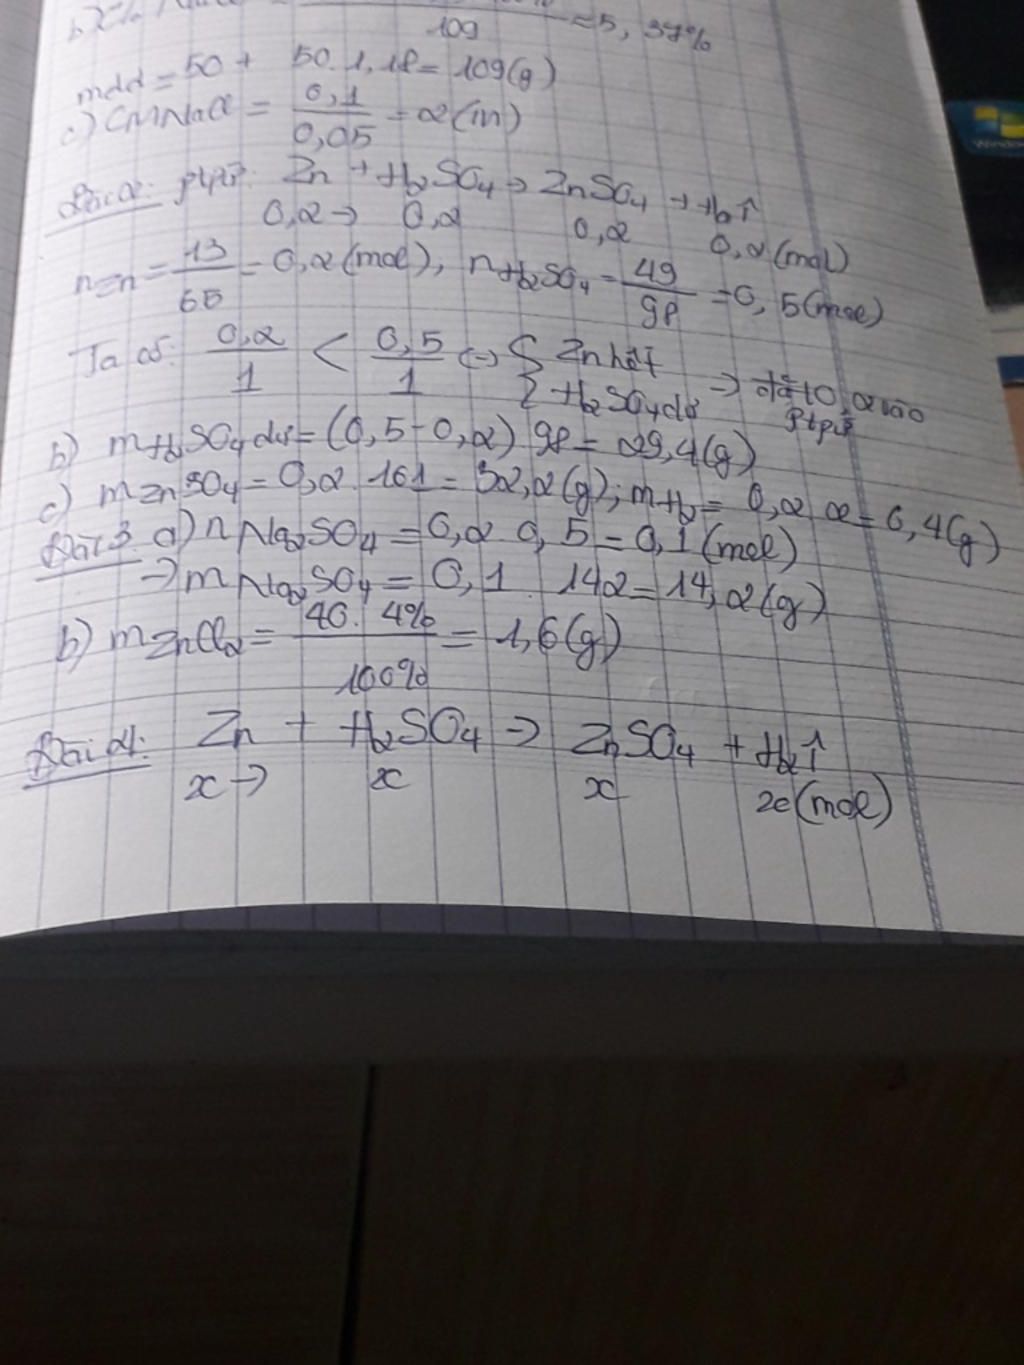 109 ≈ 5,37%
mdd = 50 + 50.1,18 = 109(g)
c) CMNaCl = 0,1/0,05 = 2(M)
Bài 2: ptpứ: Zn + H2SO4 → ZnSO4 + H2↑
0,2 → 0,2 0,2 0,2(mol)
nZn = 13/65 = 0,2(mol), nH2SO4 = 49/98 = 0,5(mol)
Ta có: 0,2/1 < 0,5/1 (=) { Zn hết H2SO4 dư ⇒ 0,2 vào ptpứ
b) mH2SO4 dư = (0,5-0,2) 98 = 29,4(g)
c) mZnSO4 = 0,2. 161 = 32,2(g); mH2 = 0,2 2 = 0,4(g)
Bài 3. a) nNa2SO4 = 0,2 0,5 = 0,1(mol)
→ mNa2SO4 = 0,1. 142 = 14,2(g)
b) mZnCl2 = 40. 4%/100% = 1,6(g)
Bài 4: Zn + H2SO4 → ZnSO4 + H2↑
x → x x x(mol)
Windows